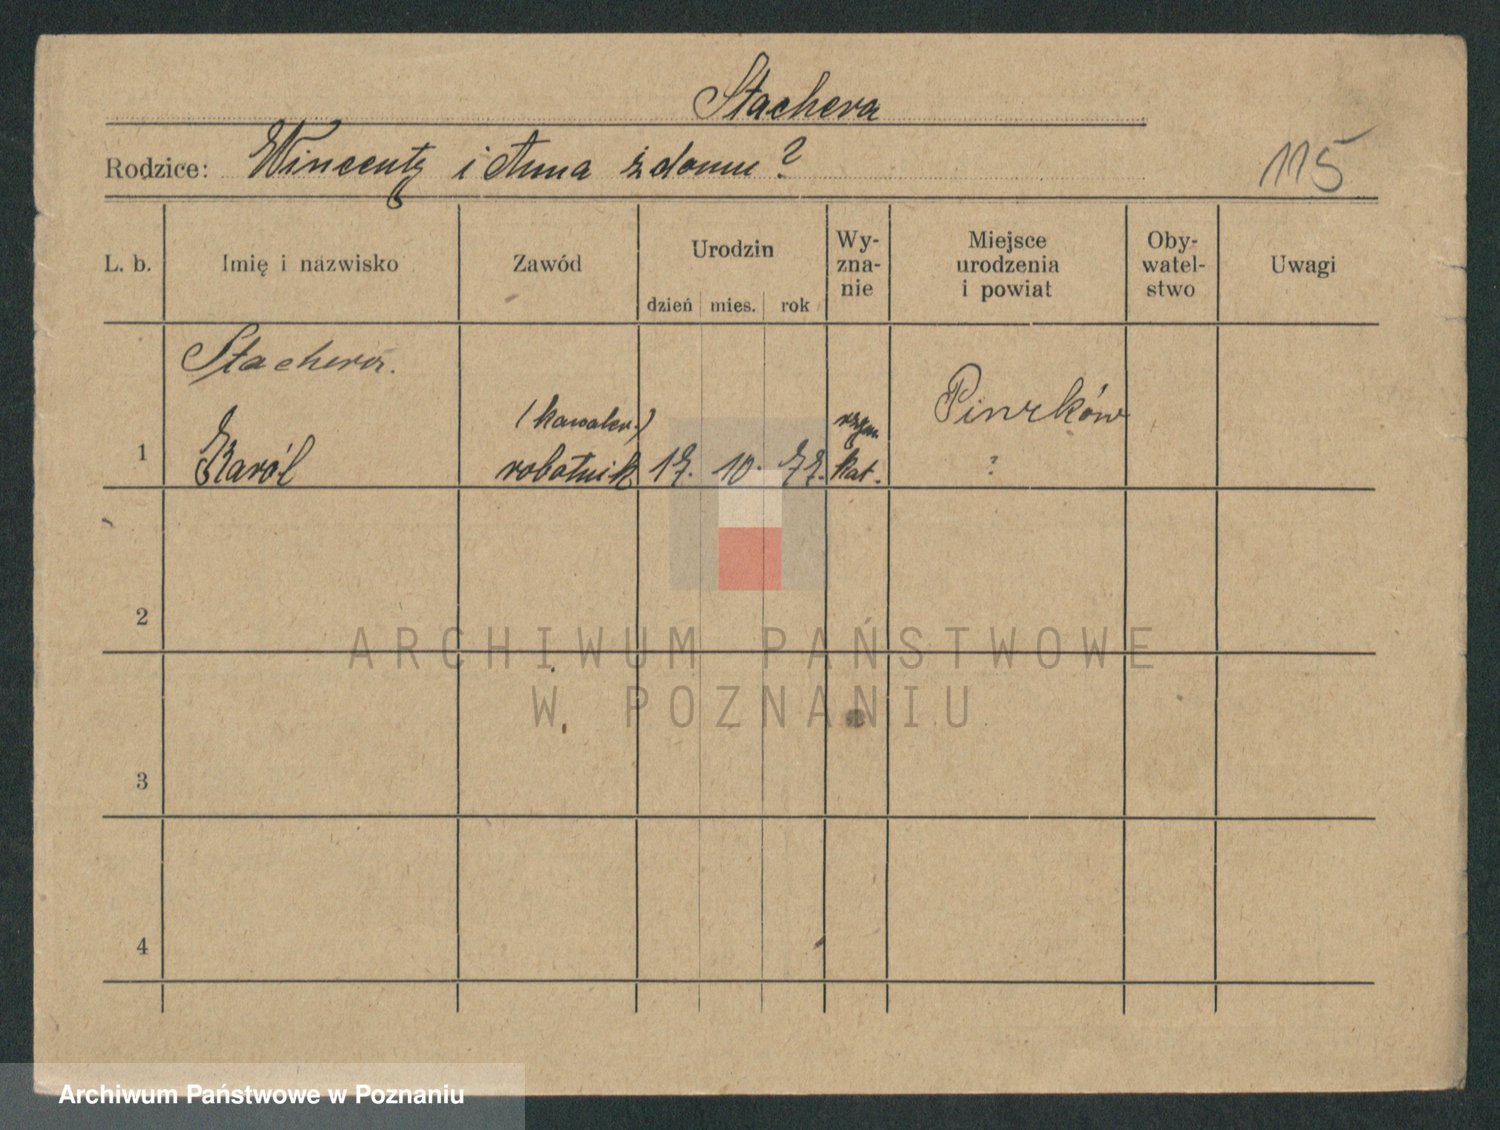 Stachera
Rodzice: Wincenty i Anna z domu ?
115
L. b. Imię i nazwisko Zawód Urodzin dzień mies. rok Wy- zna- nie Miejsce urodzenia i powiat Oby- watel- stwo Uwagi
Stachera.
(kawaler.) rzym.
1 Karól robotnik 17. 10. 77. kat. ?
2
ARCHIWUM PAŃSTWOWE
W POZNANIU
3
4
Archiwum Państwowe w Poznaniu